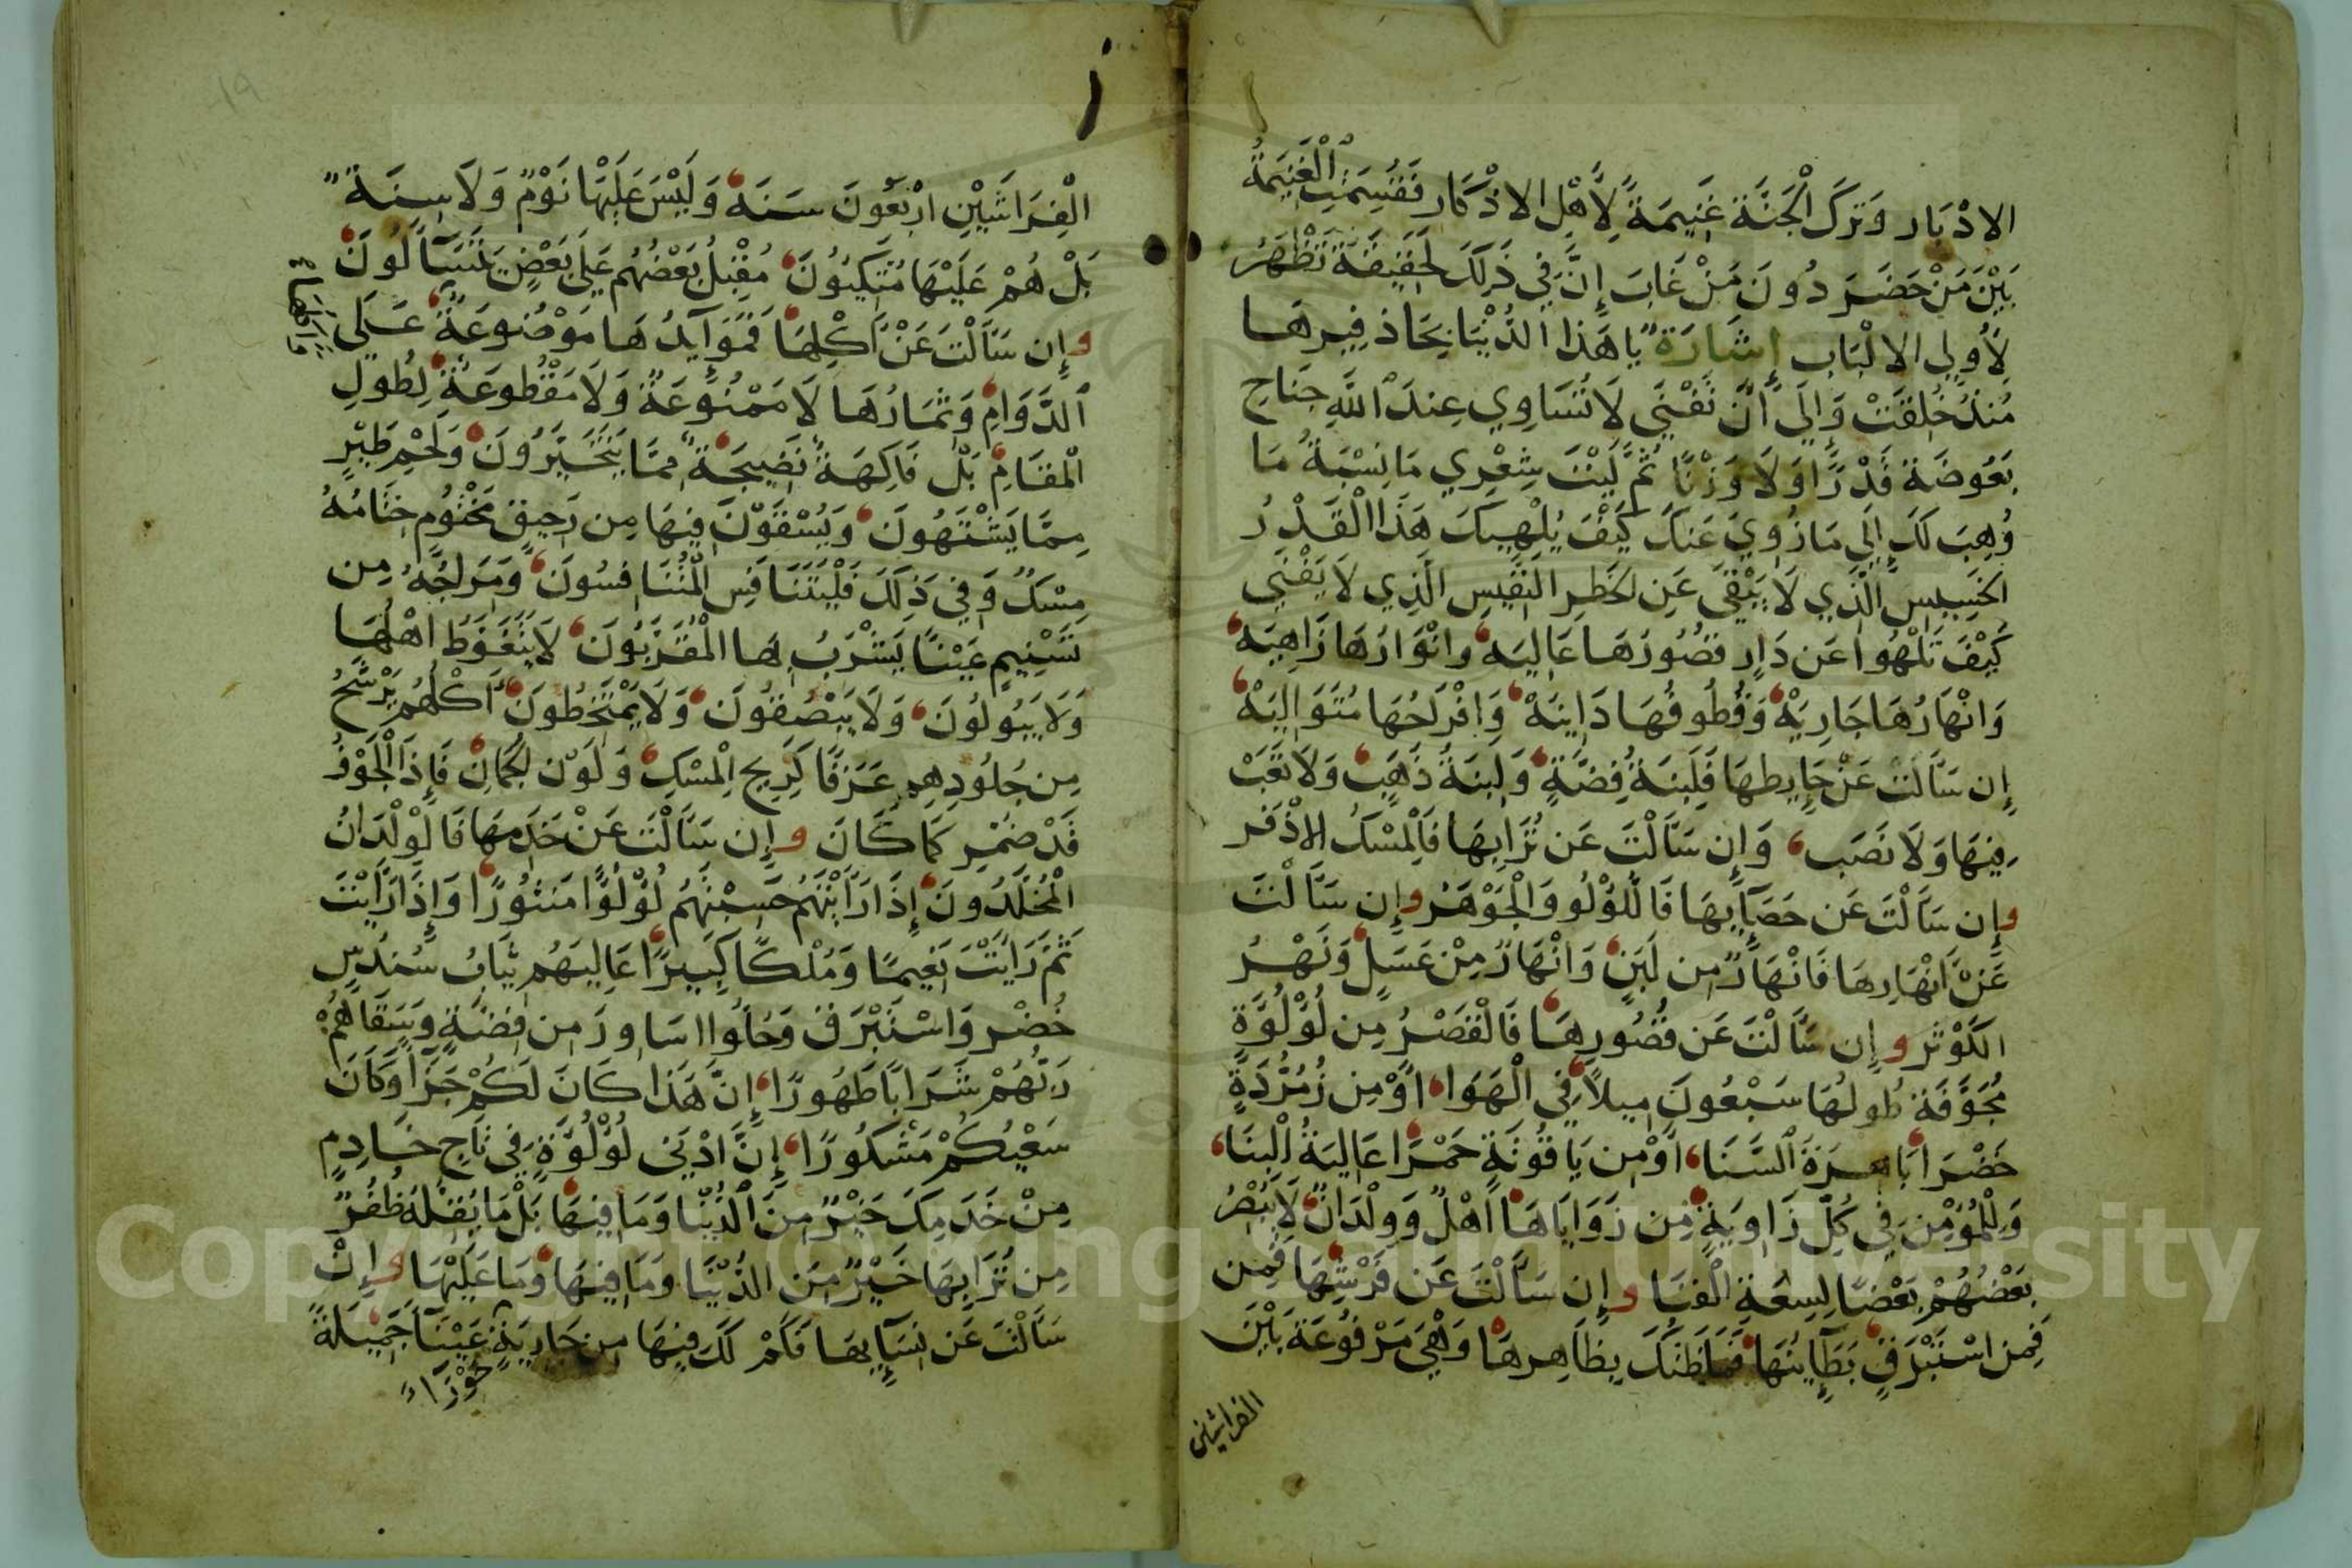 الادْبَار وَتَركَ الْجَنَّة غَنِيمَةً لِأَهْلِ الاذْكَار فَقُسِمَتِ الْغَنِيمَةُ
بَيْنَ مَنْ حَضَرَ دُونَ مَنْ غَابَ إِنَّ فِي ذَلِكَ لَحَقِيقَةً تَظْهَرُ
لِأُولِي الالْبَابِ إِشَارَةٌ يَا هَذَا الدُّنْيَا بِحَاذفِيرهَا
مُنذُ خُلِقَتْ وَإِلَى أَنْ تَفْنَى لَا تُسَاوِي عِندَ اللَّهِ جَنَاحِ
بَعُوضَة قَدْرًا وَلَا وَزْنًا ثُمَّ لَيْتَ شِعْرِي مَا نِسْبَةُ مَا
وُهِبَ لَكَ إِلَى مَا زُوِيَ عَنكَ كَيْفَ يُلْهِيكَ هَذَا الْقَدْرُ
الخَسِيسِ الَّذِي لَا يَبْقَى عَنِ الخَطِرِ النَّفِيسِ الَّذِي لَا يَفْنَى
كَيْفَ تَلْهُوا عَن دَارٍ قصُورُهَا عَالِيَه وانْوَارُهَا زَاهِيَه
وَانْهَارُهَا جَارِيَهْ وَقُطُوفُهَا دَانِيَهْ وَافْرَاحُهَا مُتَوَالِيَهْ
إِن سَأَلْتَ عَنْ حَايِطهَا فَلَبِنَةُ فِضَّةٍ وَلَبِنَةُ ذَهَبٍ وَلَا تَعَبْ
فِيهَا وَلَا نَصَب وَإِن سَأَلْتَ عَن تُرَابِهَا فَالْمسْكُ الاذْفَر
وإِن سَأَلْتَ عَن حَصَآيِهَا فَاللُؤْلُو وَالْجَوْهَرُ وإِن سَأَلْتَ
عَنْ أَنْهَارِهَا فَانْهَارٌ مِن لَبَنٍ وَانْهَارٌ مِنْ عَسَلٍ وَنَهْرُ
الكَوْثَر وإِن سَأَلْتَ عَن قُصُورِهَا فَالْقَصْرُ مِن لُؤْلُؤَةٍ
مُجَوَّفَة طُولُهَا سَبْعُونَ مِيلاً فِي الْهَوَا أَوْ مِن زُمُرُّدَةٍ
خَضْرَا بَاهرَةَ السَّنَا أَوْ مِن يَاقُوتَةٍ حَمْرَا عَالِيَةُ الْبِنَا
وَلِلْمُؤْمِنَ فِي كُلّ زَاوِيَةٍ مِن زَوَايَاهَا أَهْلٌ وَوِلْدَانٌ لَا يُبْصِرُ
بَعْضُهُمْ بَعْضًا لِسِعَةِ الْفنَا وإِن سَأَلْتَ عَن فَرْشِهَا فَمِن
فَمِن اسْتَبْرَقٍ بَطَآئِنُهَا فَمَا ظَنكَ بِظَاهِرهَا وَهْيَ مَرْفُوعَة بَيْنَ
الفراشين
الْفِرَاشَيْنِ ارْبَعُونَ سَنَة وَلَيْسَ عَلَيْهَا نَوْمٌ وَلَا سِنَةٌ
بَلْ هُمْ عَلَيْهَا مُتَّكِئُونَ مُقْبِلُ بَعْضُهُم عَلَى بَعْضٍ يَتَسَآلُونَ
وإِن سَأَلْتَ عَنْ أَكْلِهَا فَمَوَآيدُهَا مَوْضُوعَةٌ عَلَى
الدَّوَامِ وَثِمَارُهَا لَا مَمْنُوعَةٌ وَلَا مَقْطُوعَةٌ لِطُولِ
الْمقَامِ بَلْ فَاكِهَةٌ نَضِيجَةٌ مِمَّا يَتَخَيَّرُونَ وَلَحْمِ طَيْرٍ
مِمَّا يَشْتَهُونَ وَيُسْقَوْنَ فِيهَا مِن رَحِيقٍ مَخْتُومٍ خِتَامُهُ
مِسْكٌ وَفِي ذَلِكَ فَلْيَتَنَافَسِ الْمُتَنَافِسُونَ وَمَزَاجُهُ مِن
تَسْنِيمٍ عَيْنًا يَشْرَبُ بِهَا الْمُقَرَّبُونَ لَا يَتَغَوَّطُ أهْلُهَا
وَلَا يَبُولُونَ وَلَا يَبْصُقُونَ وَلَا يَمْتَخِطُونَ أَكْلُهُم يَرْشَحُ
مِن جُلُودِهِم عَرَقًا كَرِيحِ الْمِسْكِ وَلَوْن الجُمَانِ فَإِذَا الْجَوْفُ
قَدْ ضمُر كَمَا كَانَ وإِن سَأَلْتَ عَنْ خَدَمِهَا فَالْوِلْدَانُ
الْمُخَلَّدُونَ إِذَا رَأَيْتَهُم حَسِبْتَهُم لُؤْلُؤًا مَنثُورًا وَإِذَا رَأَيْتَ
ثَمَّ رَأَيْتَ نَعِيمًا وَمُلْكًا كَبِيرًا عَالِيَهُم ثِيَابُ سُندُسٍ
خُضْر وَاسْتَبْرَق وَحُلُّوا اسَاورَ مِن فِضَّةٍ وَسَقَاهُمْ
رَبُّهُمْ شَرَابًا طَهُورًا إِنَّ هَذَا كَانَ لَكُمْ جَزَآ وَكَانَ
سَعْيُكُمْ مَشْكُورًا إِنَّ ادْنَى لُؤْلُؤَةٍ فِي تَاجِ خَادِمٍ
مِنْ خَدَمِكَ خَيْرٌ مِنَ الدُّنْيَا وَمَا فِيهَا بَلْ مَا يُقِلُّهُ ظُفُرٌ
مِن تُرَابِهَا خَيْرٌ مِنَ الدُنْيَا وَمَا فِيهَا وَمَا عَلَيْهَا وإِنْ
سَأَلْتَ عَن نِسَآيِهَا فَكَمْ لَكَ فِيهَا مِن جَارِيَةٍ عَيْنَآ جَمِيلَةً
حَوْرَآءَ
Copyright © King Saud University